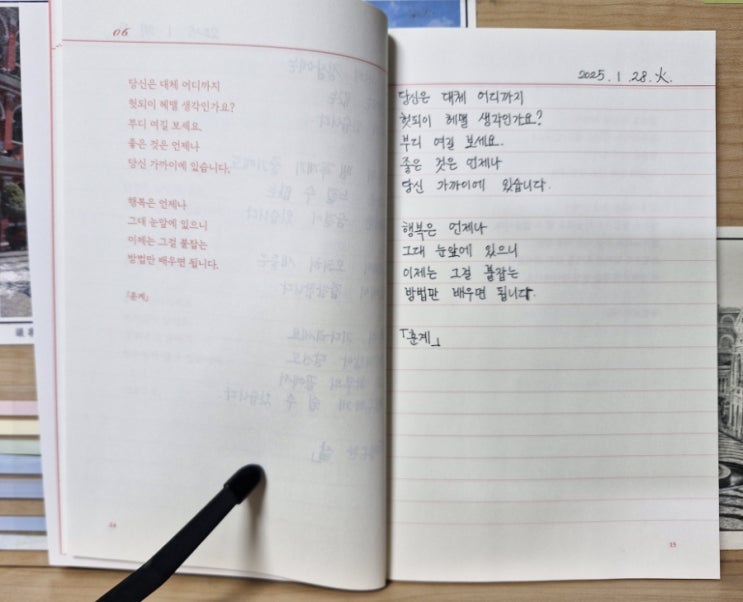 06
당신은 대체 어디까지
헛되이 헤맬 생각인가요?
부디 여길 보세요.
좋은 것은 언제나
당신 가까이에 있습니다.
행복은 언제나
그대 눈앞에 있으니
이제는 그걸 붙잡는
방법만 배우면 됩니다.
「훈계」
2025. 1. 28. 火.
당신은 대체 어디까지
헛되이 헤맬 생각인가요?
부디 여길 보세요.
좋은 것은 언제나
당신 가까이에 있습니다.
행복은 언제나
그대 눈앞에 있으니
이제는 그걸 붙잡는
방법만 배우면 됩니다.
「훈계」
15